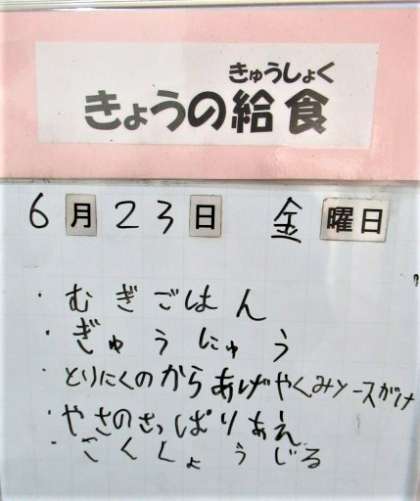 きゅうしょく
きょうの給食
6月23日 金曜日
・むぎごはん
・ぎゅうにゅう
・とりにくのからあげやくみソースがけ
・やさのさっぱりあえ
・ごくしょうじる